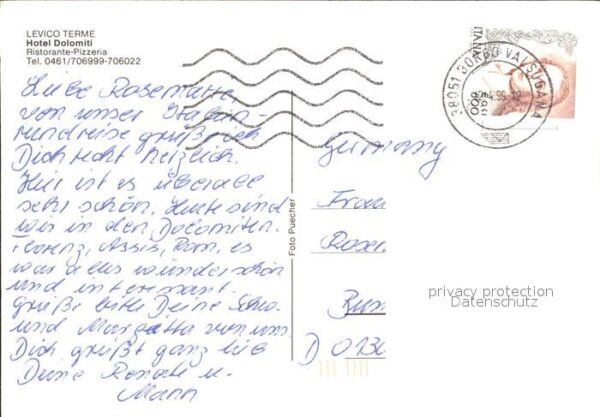 LEVICO TERME
Hotel Dolomiti
Ristorante-Pizzeria
Tel. 0461/706999-706022
Liebe Rosemarie,
von unser Italien-
rundreise grüß ich
Dich recht herzlich.
Hier ist es überall
sehr schön. Heute sind
wir in den Dolomiten.
Florenz, Assis, Rom, es
war alles wunderschön
und interessant.
Grüße bitte Deine
und von uns
Dich grüßt ganz lieb
Deine Renate u.
Mann
Foto Puecher
38051 BORGO VALSUGANA
ITALIA
Germany
Frau
Roser
D 0130
privacy protection
Datenschutz